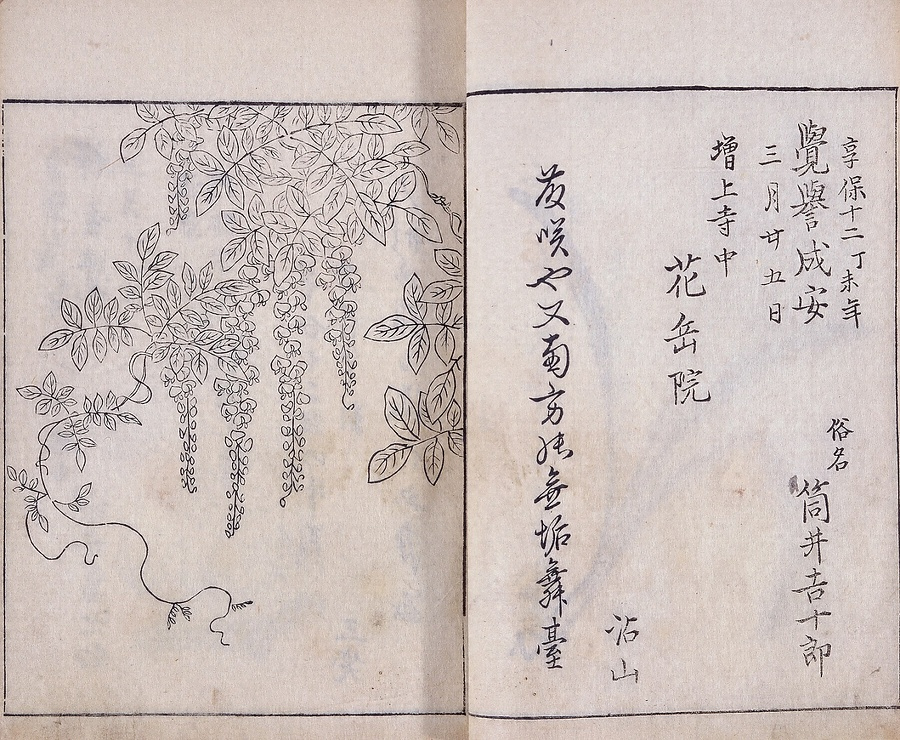 享保十二丁未年
覺譽成安
三月廿五日
俗名
筒井吉十郎
増上寺中
花岳院
咲や又南方能無垢舞臺
沾山